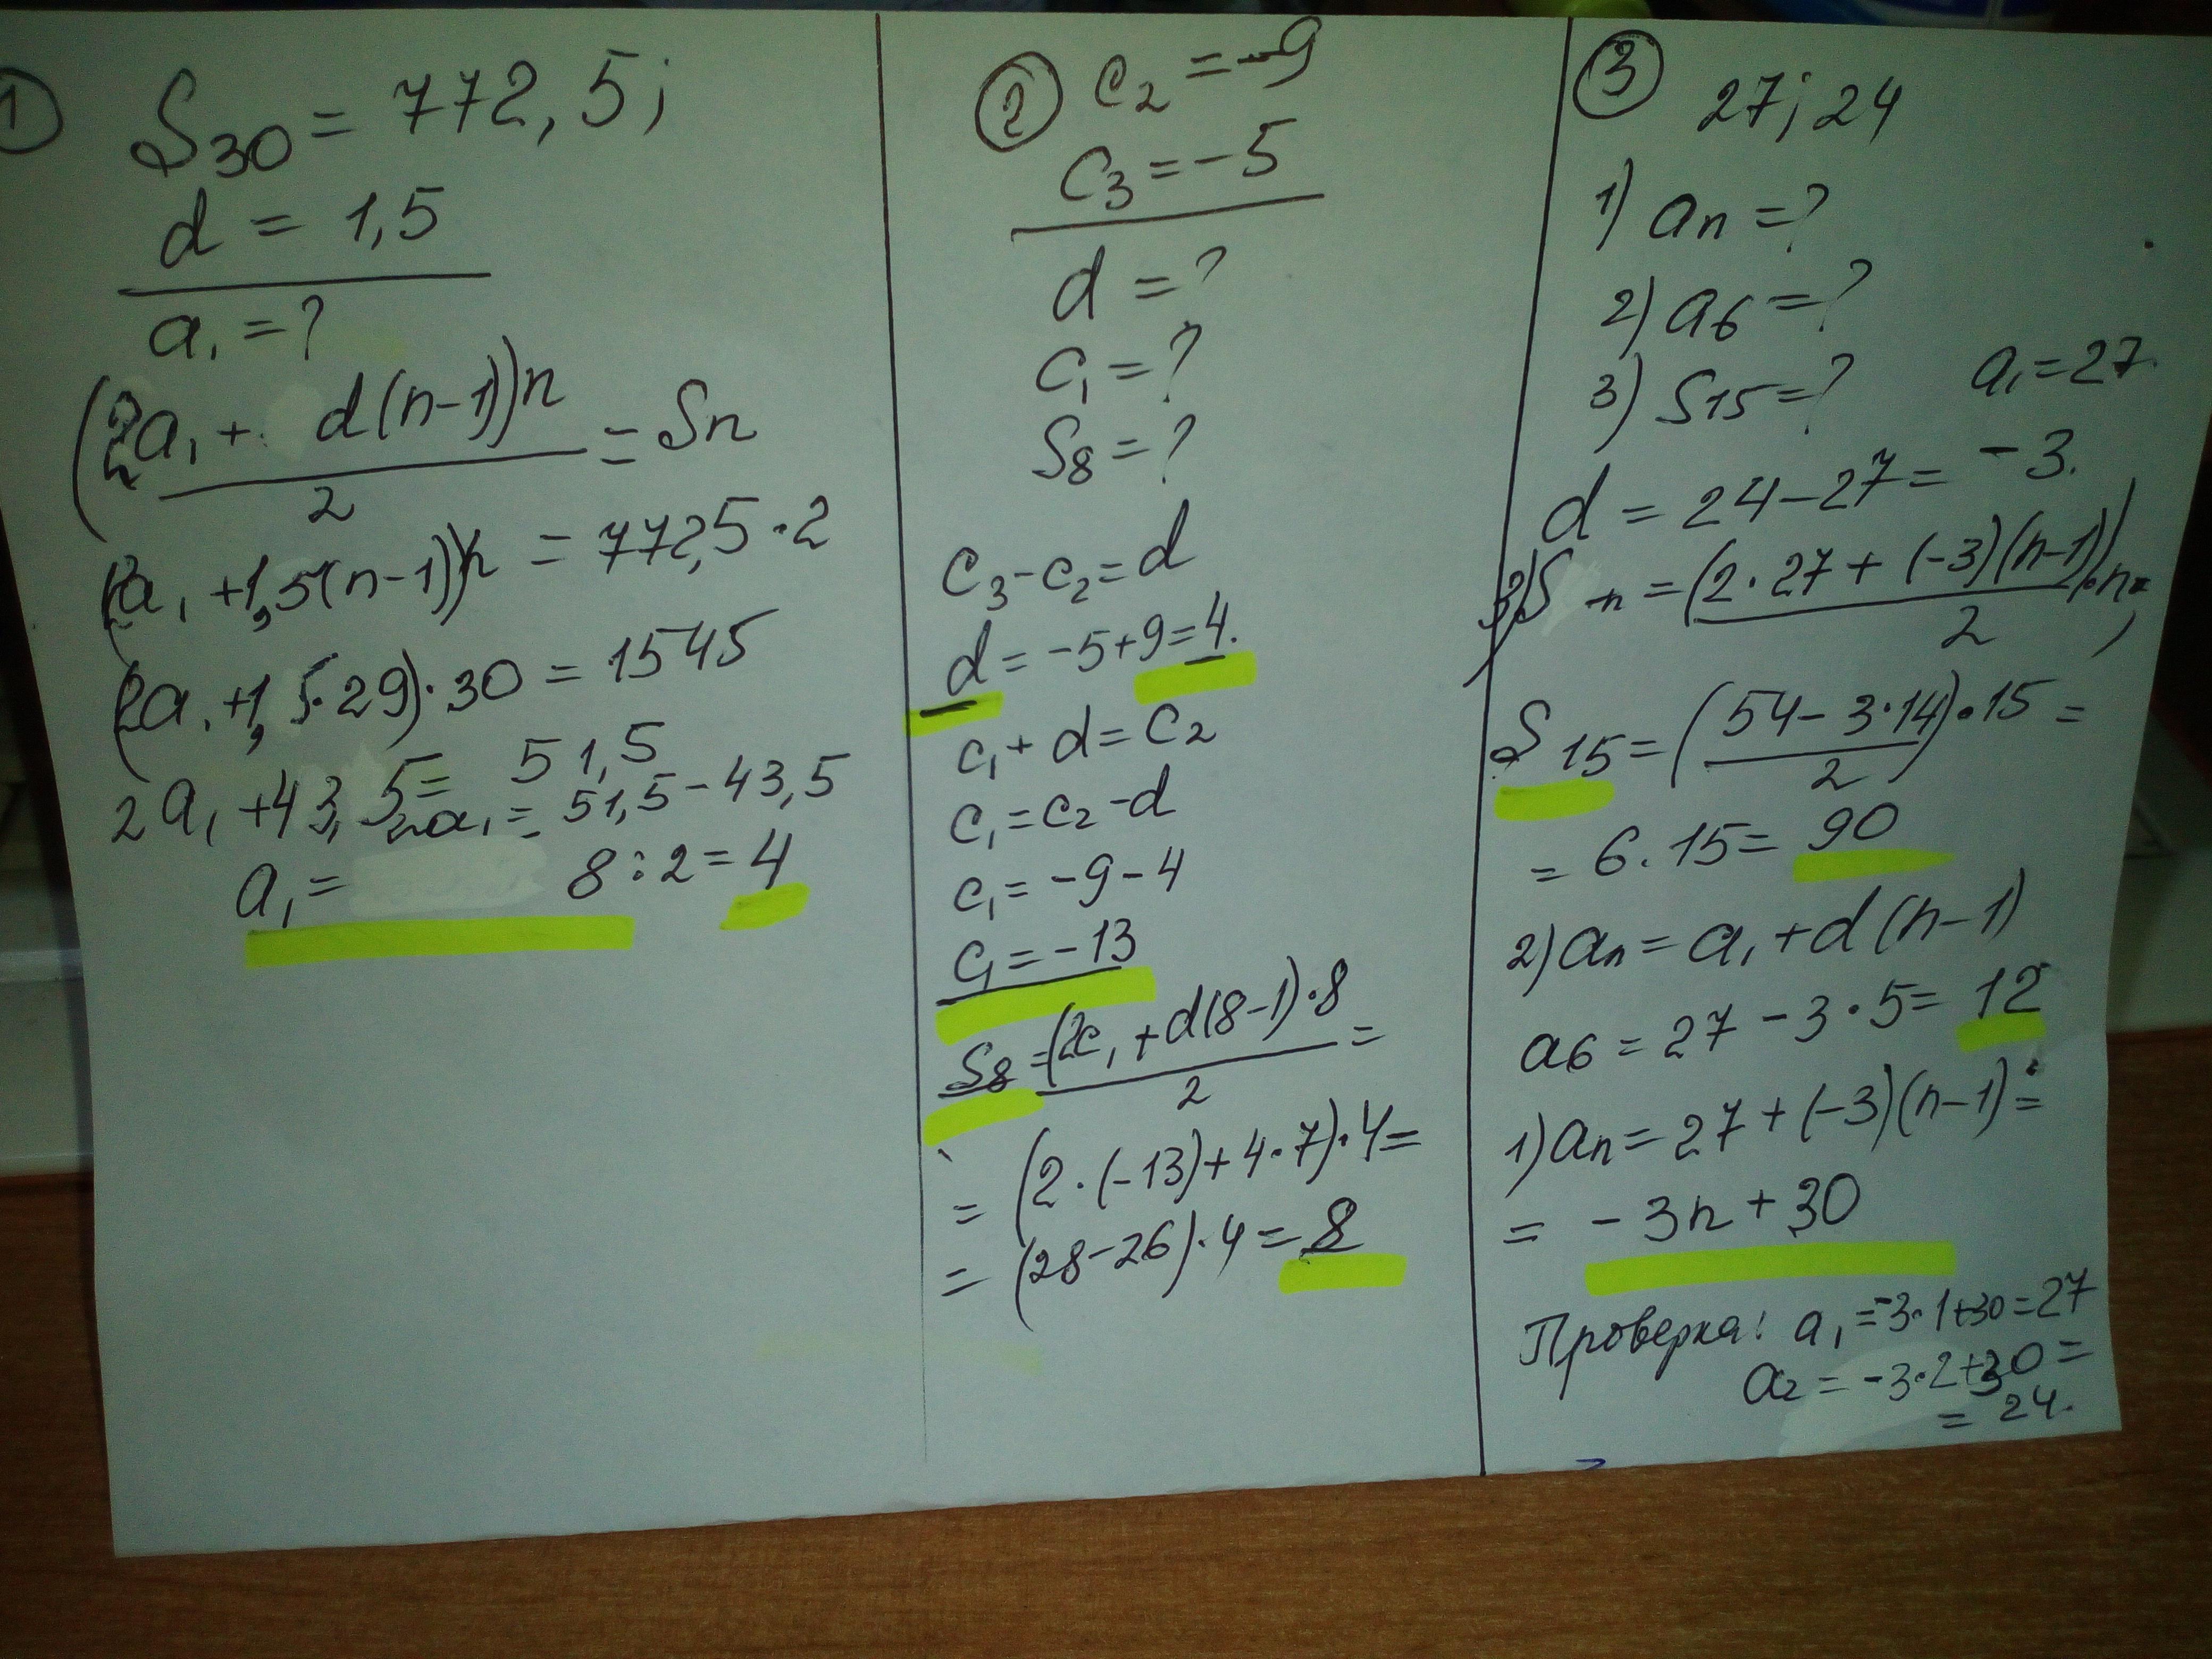 1
S30 = 772,5;
d = 1,5
a1 = ?
(2a1 + d(n-1))n / 2 = Sn
(2a1 + 1,5(n-1))n = 772,5·2
(2a1 + 1,5·29)·30 = 1545
2a1 + 43,5 = 51,5
2a1 = 51,5 - 43,5
a1 = 8:2 = 4
2 c2 = -9
c3 = -5
d = ?
c1 = ?
S8 = ?
c3 - c2 = d
d = -5+9 = 4.
c1 + d = c2
c1 = c2 - d
c1 = -9 - 4
c1 = -13
S8 = (2c1 + d(8-1)·8 / 2 =
= (2·(-13)+4·7)·4 =
= (28-26)·4 = 8
3 27; 24
1) an = ?
2) a6 = ?
3) S15 = ?
a1 = 27.
d = 24-27 = -3.
3) Sn = (2·27 + (-3)(n-1) / 2)·n =
S15 = (54 - 3·14 / 2)·15 =
= 6·15 = 90
2) an = a1 + d(n-1)
a6 = 27 - 3·5 = 12
1) an = 27 + (-3)(n-1) =
= -3n + 30
Проверка: a1 = -3·1+30 = 27
a2 = -3·2+30 =
= 24.